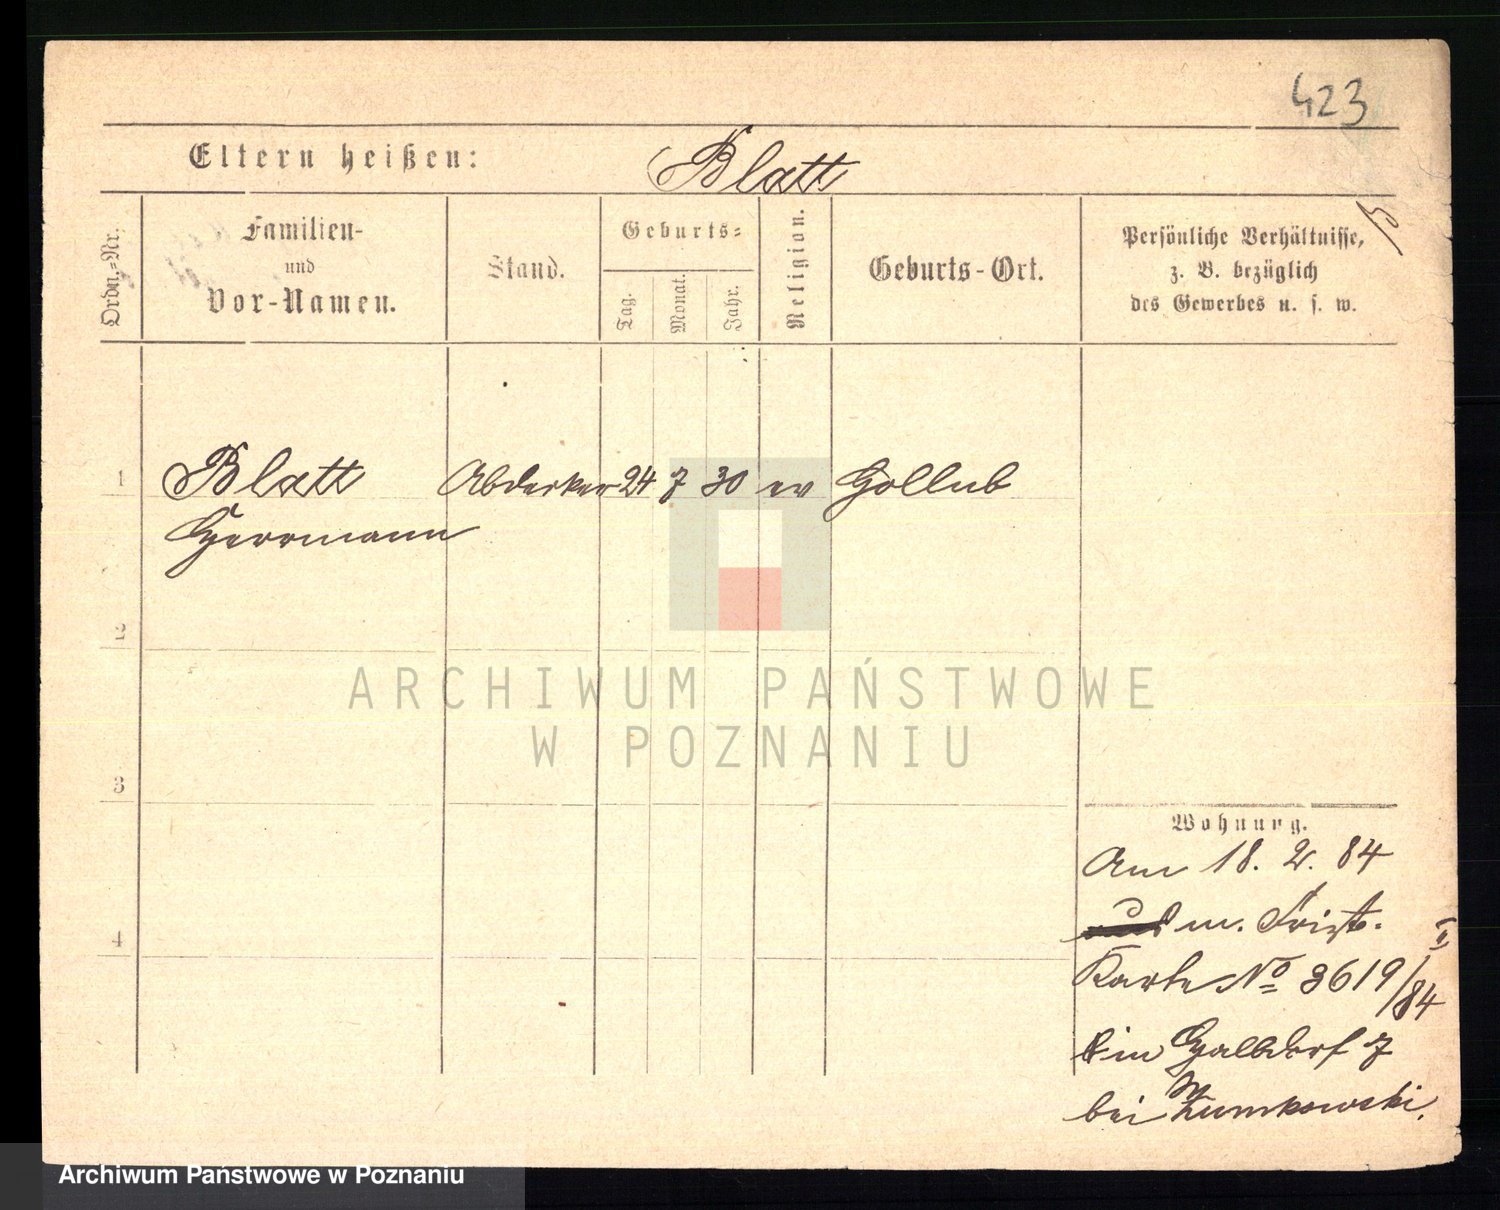 423
Eltern heißen: Blatt
Ordn.-Nr.
Familien-
und
Vor-Namen.
Stand.
Geburts-
Tag.
Monat.
Jahr.
Religion.
Geburts-Ort.
Persönliche Verhältnisse,
z. B. bezüglich
des Gewerbes u. s. w.
1 Blatt Abdecker 24 7 30 ev Gollub
Herrmann
2
3
4
Wohnung.
Am 18. 2. 84
m.
Karte No 3619/84 II
in Halbdorf 7
bei
ARCHIWUM PAŃSTWOWE
W POZNANIU
Archiwum Państwowe w Poznaniu